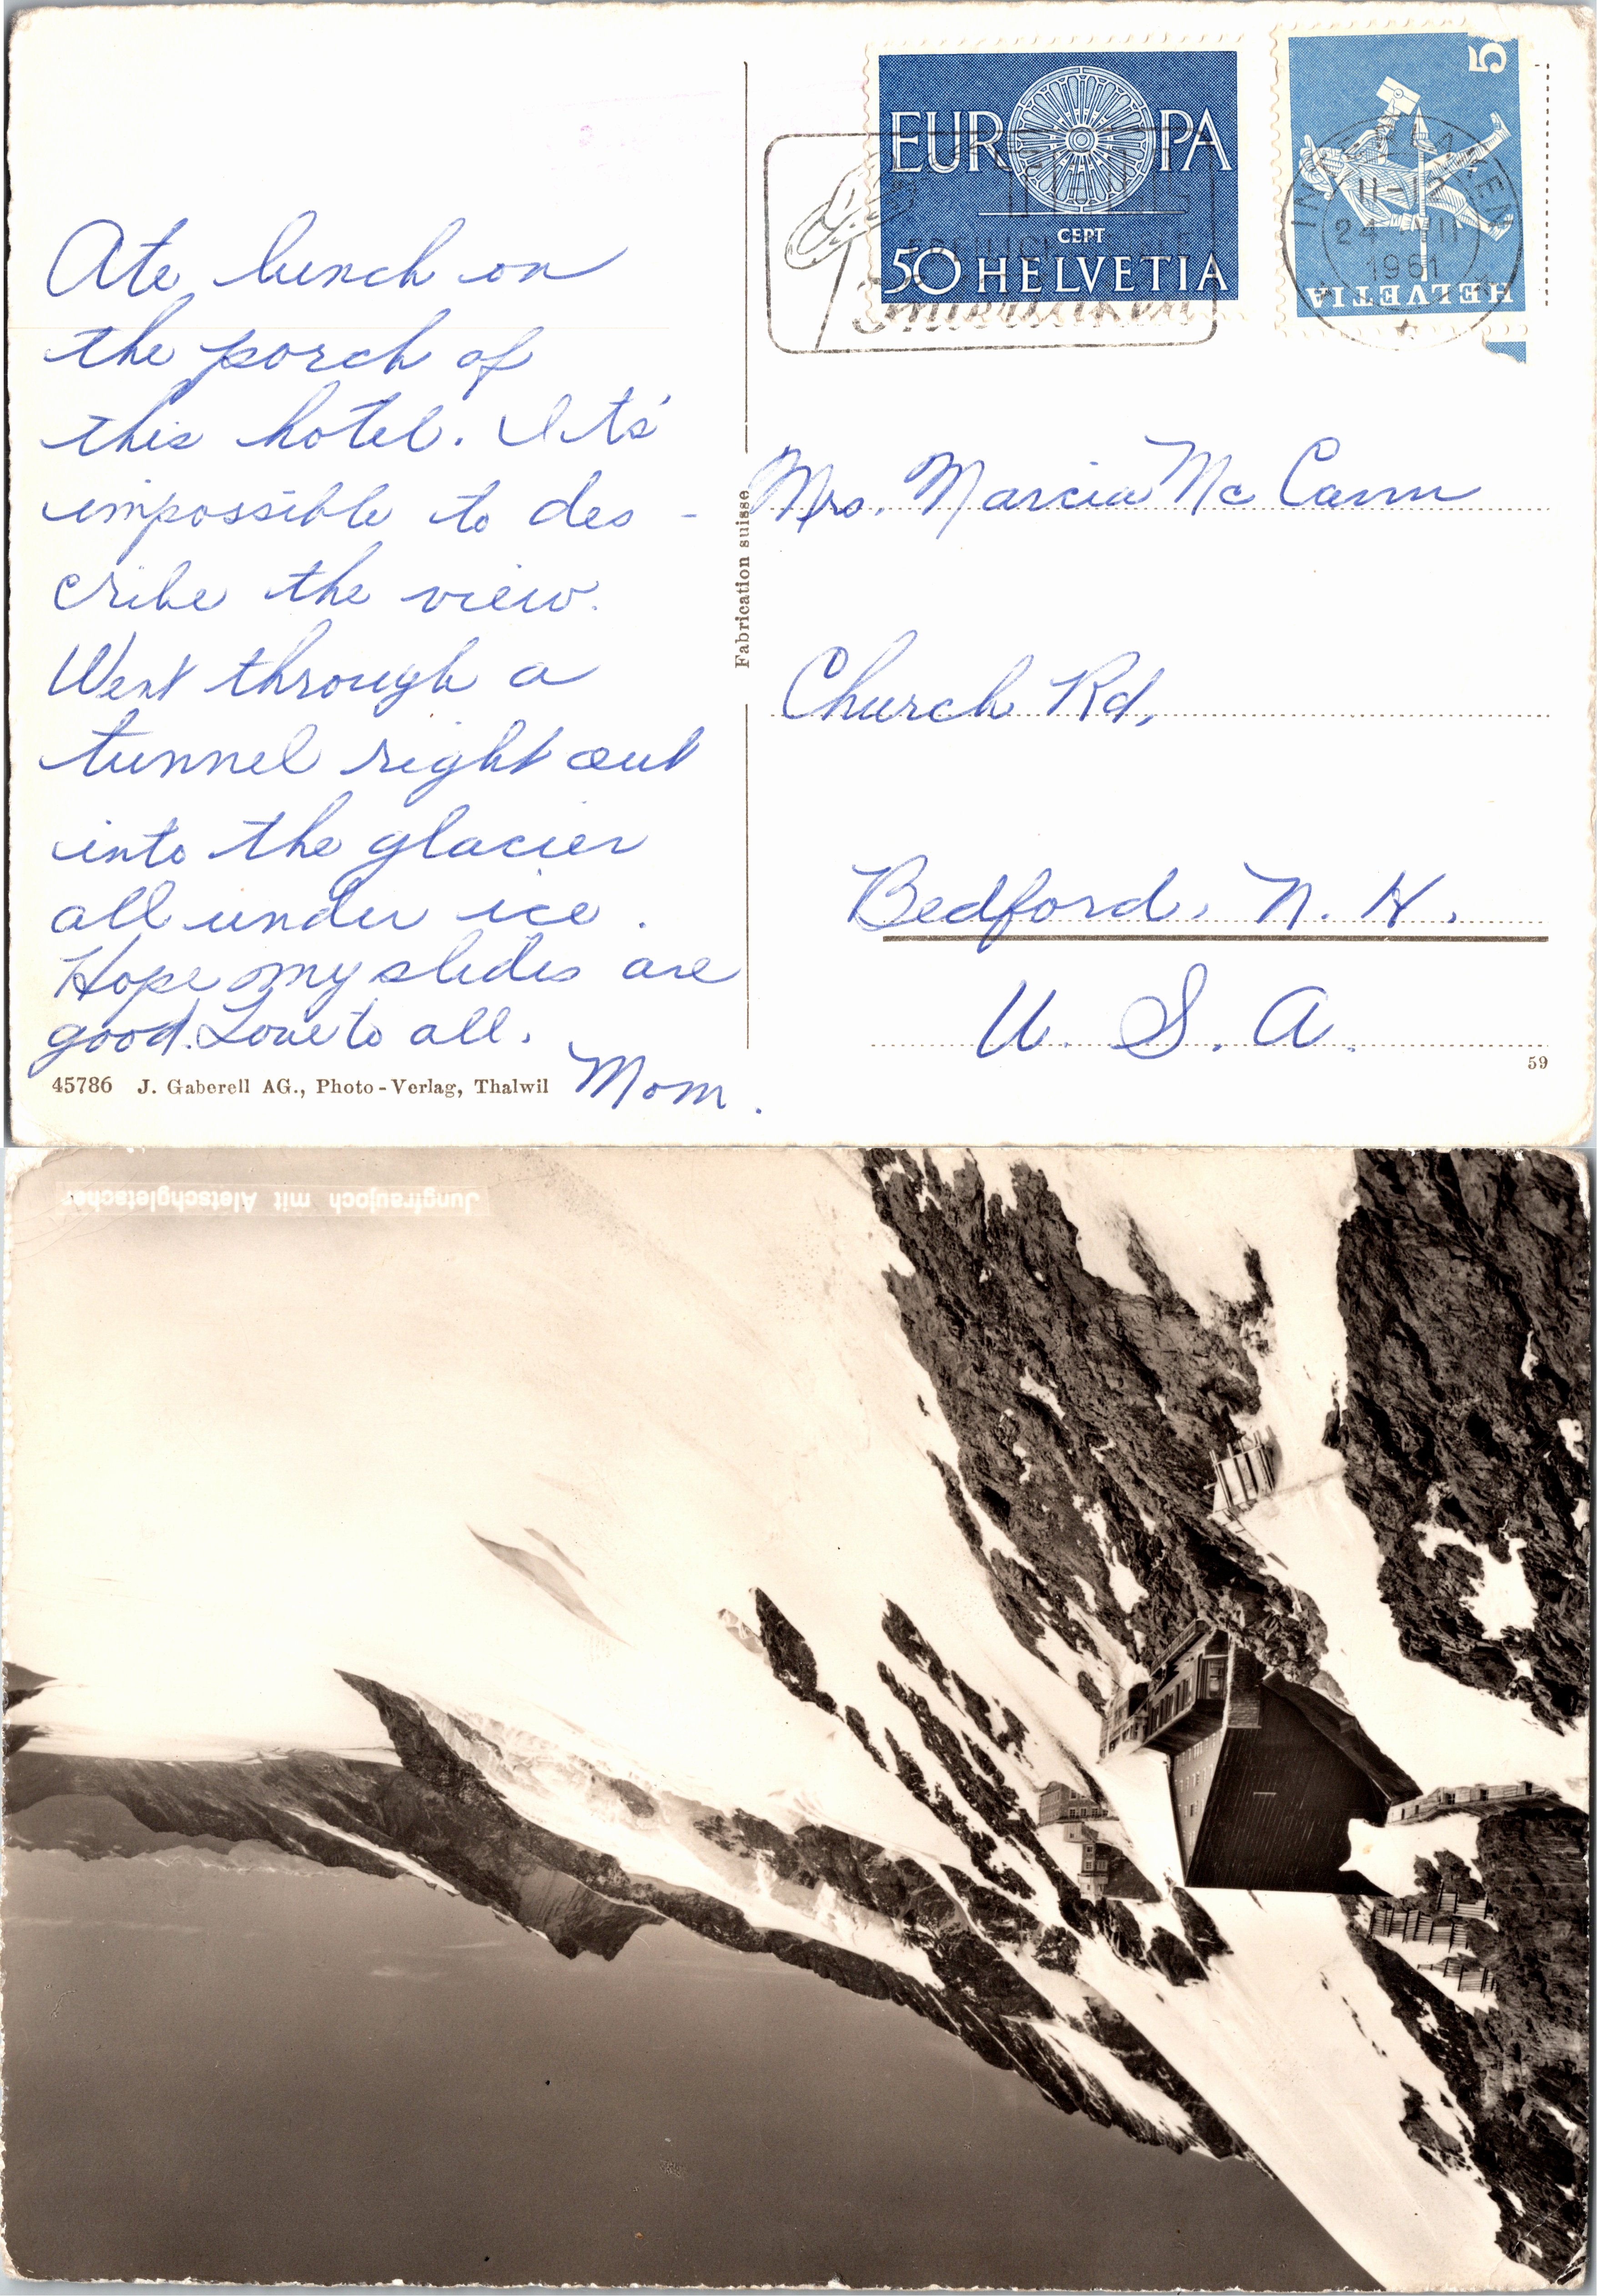 Ate lunch on
the porch of
this hotel. Its'
impossible to des -
cribe the view.
Went through a
tunnel right out
into the glacier
all under ice.
Hope my slides are
good. Love to all.
Mom.
45786 J. Gaberell AG., Photo-Verlag, Thalwil
Fabrication suisse
EUROPA
CEPT
50 HELVETIA
Interlaken
5
HELVETIA
INTERLAKEN
11-12
24 VII
1961
Mrs. Marcia Mc Cann
Church Rd,
Bedford, N. H.
U. S. A.
59
Jungfraujoch mit Aletschgletscher